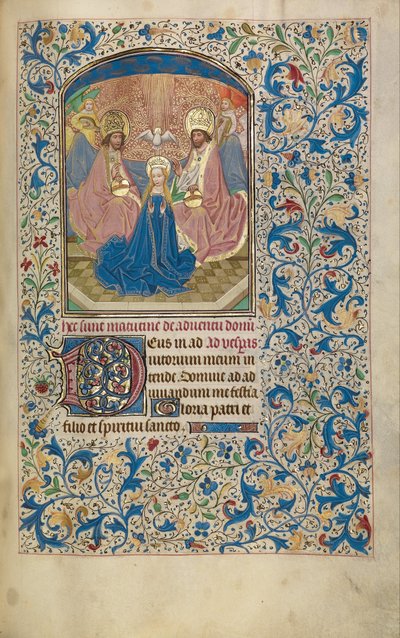 hec sunt mutacione de aduentu domi
Deus in ad ad vesperas
iutorium meum in
tende. Domine ad ad
iuuandum me festi a
Gloria patri et
filio et spiritui sancto.